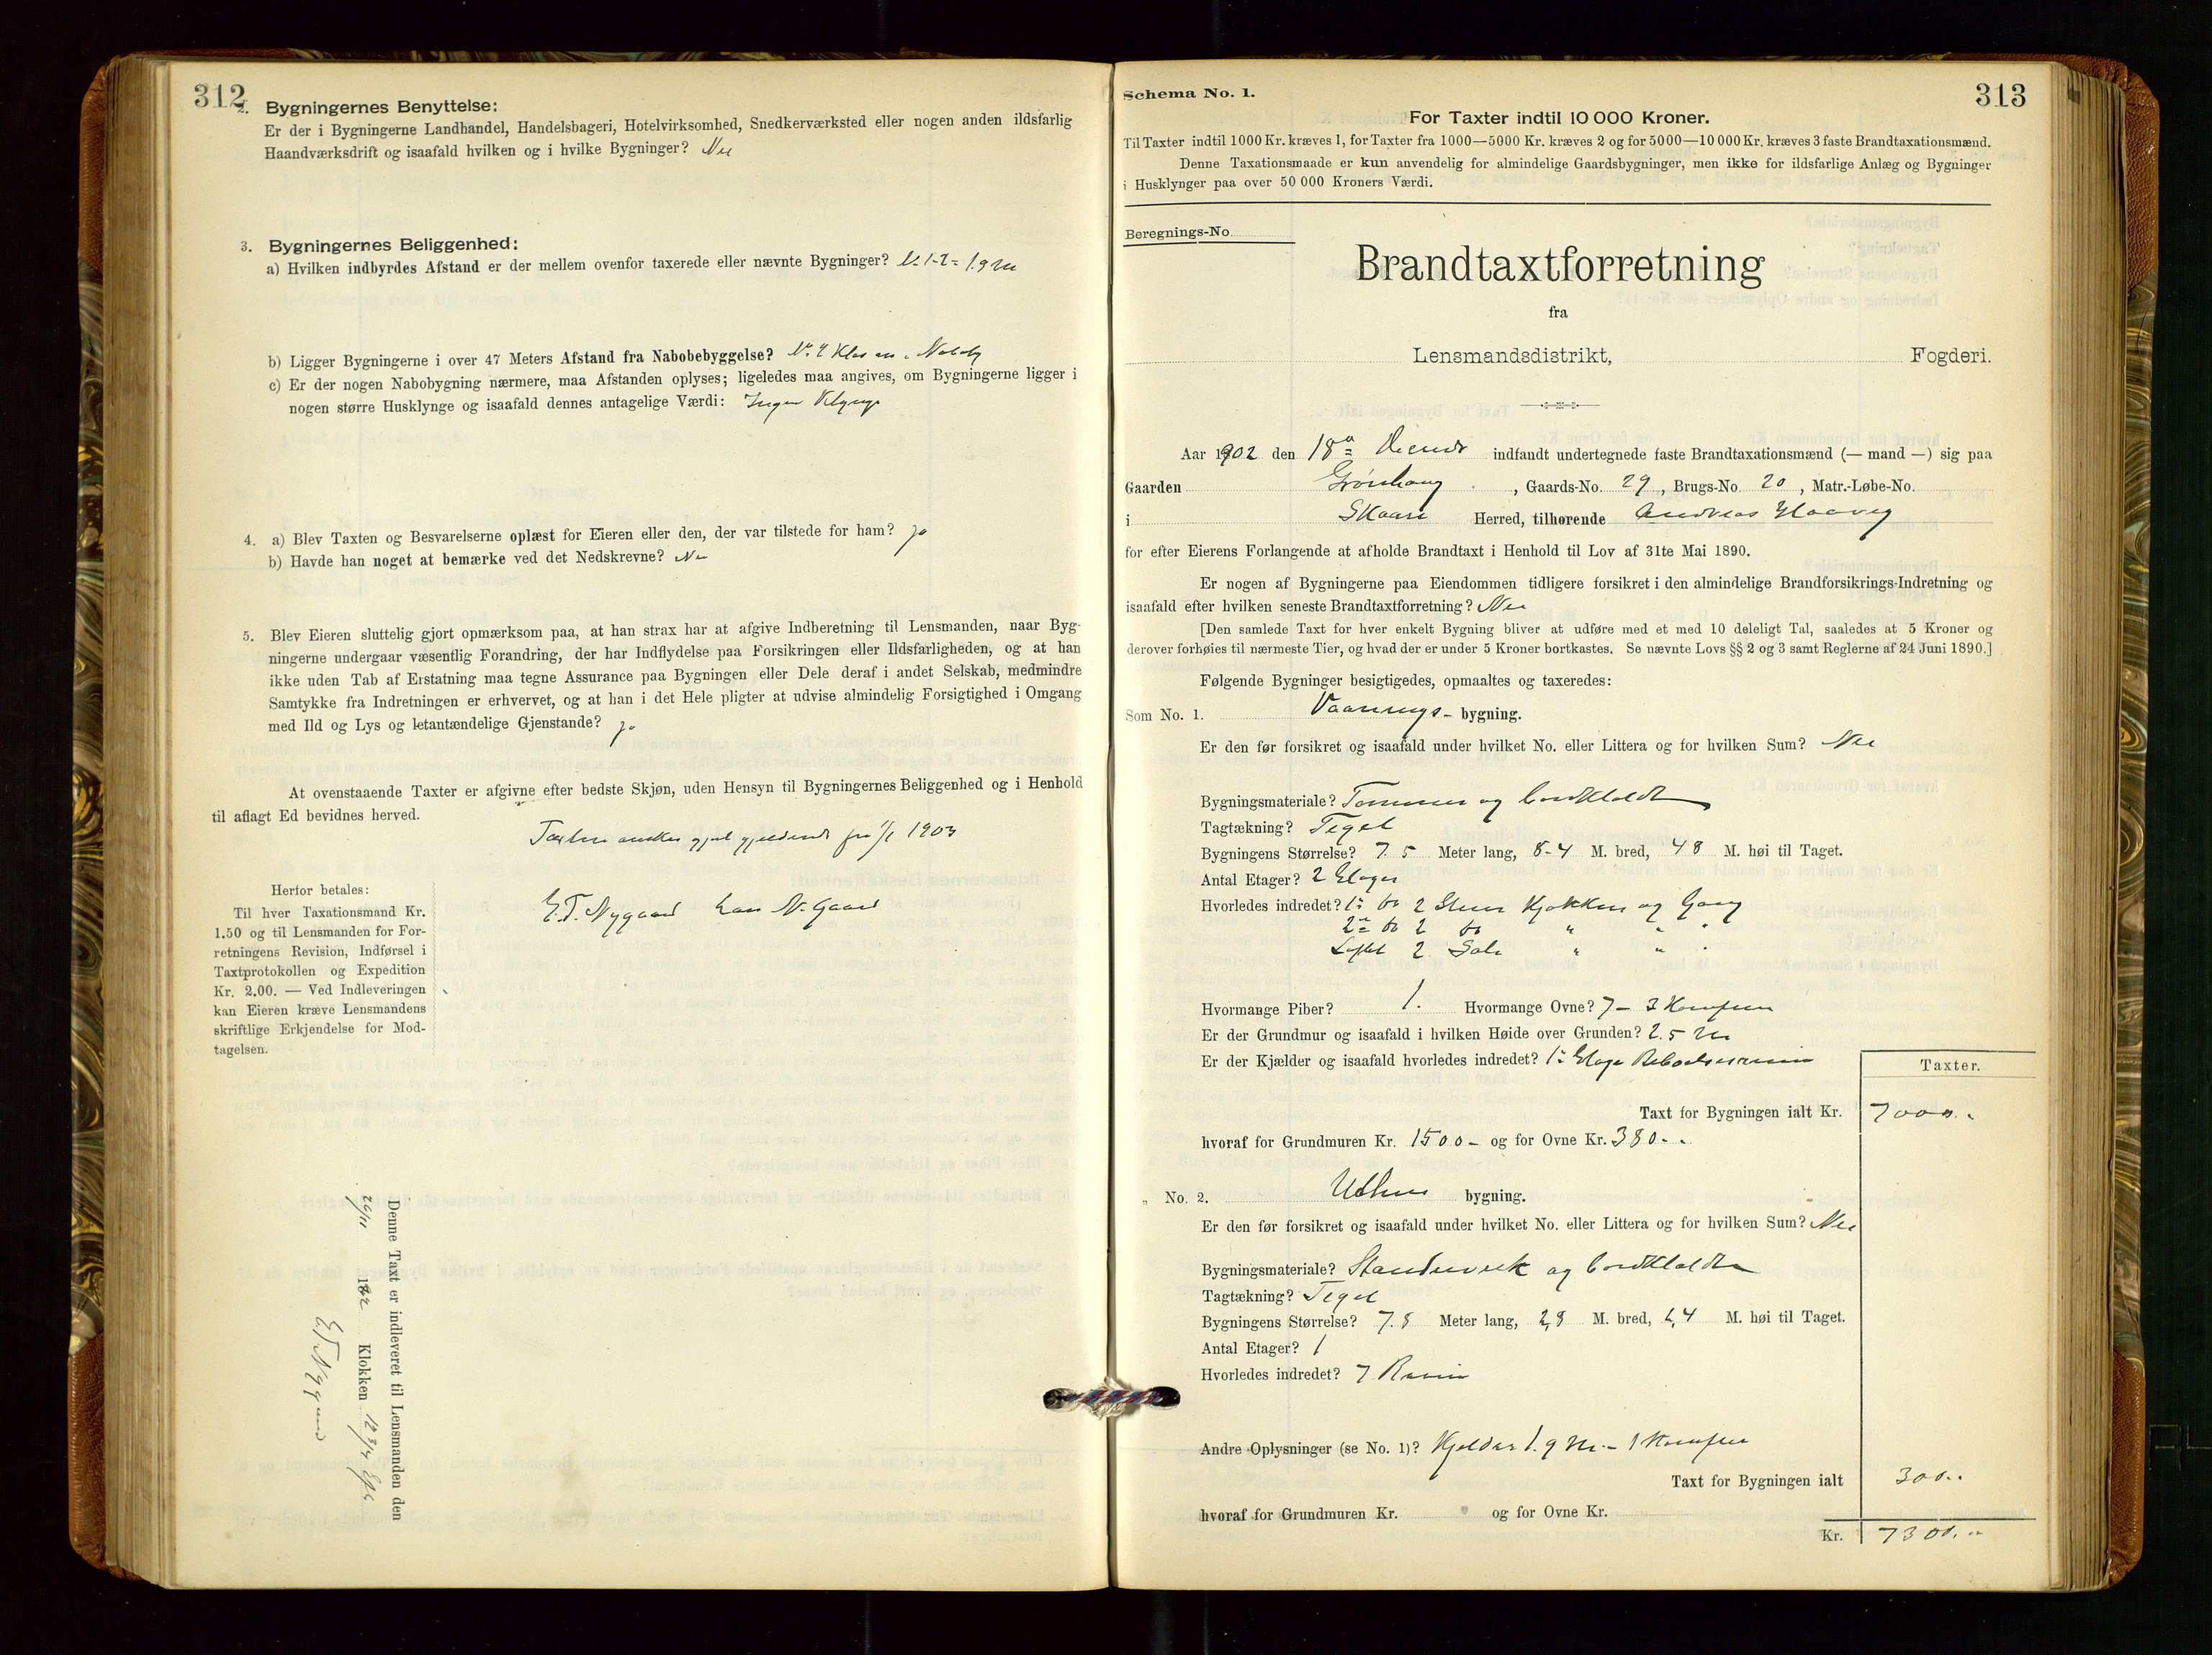 312
2. Bygningernes Benyttelse:
Er der i Bygningerne Landhandel, Handelsbageri, Hotelvirksomhed, Snedkerværksted eller nogen anden ildsfarlig
Haandværksdrift og isaafald hvilken og i hvilke Bygninger? Nei
3. Bygningernes Beliggenhed:
a) Hvilken indbyrdes Afstand er der mellem ovenfor taxerede eller nævnte Bygninger? N. 1-2 = 1.9 M
b) Ligger Bygningerne i over 47 Meters Afstand fra Nabobebyggelse?
c) Er der nogen Nabobygning nærmere, maa Afstanden oplyses; ligeledes maa angives, om Bygningerne ligger i
nogen større Husklynge og isaafald dennes antagelige Værdi: Ingen Klynge
4. a) Blev Taxten og Besvarelserne oplæst for Eieren eller den, der var tilstede for ham? Ja
b) Havde han noget at bemærke ved det Nedskrevne? Nei
5. Blev Eieren sluttelig gjort opmærksom paa, at han strax har at afgive Indberetning til Lensmanden, naar Byg-
ningerne undergaar væsentlig Forandring, der har Indflydelse paa Forsikringen eller Ildsfarligheden, og at han
ikke uden Tab af Erstatning maa tegne Assurance paa Bygningen eller Dele deraf i andet Selskab, medmindre
Samtykke fra Indretningen er erhvervet, og at han i det Hele pligter at udvise almindelig Forsigtighed i Omgang
med Ild og Lys og letantændelige Gjenstande? Ja
At ovenstaaende Taxter er afgivne efter bedste Skjøn, uden Hensyn til Bygningernes Beliggenhed og i Henhold
til aflagt Ed bevidnes herved.
Taxten ønskes gjort gjeldende fra 1/1 1903
E. T. Nygaard Lars N. Gaard
Herfor betales:
Til hver Taxationsmand Kr.
1.50 og til Lensmanden for For-
retningens Revision, Indførsel i
Taxtprotokollen og Expedition
Kr. 2.00. — Ved Indleveringen
kan Eieren kræve Lensmandens
skriftlige Erkjendelse for Mod-
tagelsen.
Denne Taxt er indleveret til Lensmanden den
26/11 1902 Klokken 12 3/4 Efm
E T Nygaard
Schema No. 1.
313
For Taxter indtil 10 000 Kroner.
Til Taxter indtil 1000 Kr. kræves 1, for Taxter fra 1000—5000 Kr. kræves 2 og for 5000—10 000 Kr. kræves 3 faste Brandtaxationsmænd.
Denne Taxationsmaade er kun anvendelig for almindelige Gaardsbygninger, men ikke for ildsfarlige Anlæg og Bygninger
i Husklynger paa over 50 000 Kroners Værdi.
Beregnings-No.
Brandtaxtforretning
fra
Lensmandsdistrikt, Fogderi.
Aar 1902 den 18de indfandt undertegnede faste Brandtaxationsmænd (— mand —) sig paa
Gaarden Grønhaug, Gaards-No. 29, Brugs-No. 20, Matr.-Løbe-No.
i Skaare Herred, tilhørende Andreas Haavig
for efter Eierens Forlangende at afholde Brandtaxt i Henhold til Lov af 31te Mai 1890.
Er nogen af Bygningerne paa Eiendommen tidligere forsikret i den almindelige Brandforsikrings-Indretning og
isaafald efter hvilken seneste Brandtaxtforretning? Nei
[Den samlede Taxt for hver enkelt Bygning bliver at udføre med et med 10 deleligt Tal, saaledes at 5 Kroner og
derover forhøies til nærmeste Tier, og hvad der er under 5 Kroner bortkastes. Se nævnte Lovs §§ 2 og 3 samt Reglerne af 24 Juni 1890.]
Følgende Bygninger besigtigedes, opmaaltes og taxeredes:
Som No. 1. Vaanings- bygning.
Er den før forsikret og isaafald under hvilket No. eller Littera og for hvilken Sum? Nei
Bygningsmateriale? Tømmer og bordklædt
Tagtækning? Tegel
Bygningens Størrelse? 7.5 Meter lang, 8-4 M. bred, 48 M. høi til Taget.
Antal Etager? 2 Etager
Hvorledes indredet? 1ste do 2 Stuer Kjøkken og Gang
2de do 2 do " " "
Loftet 2 Sale " " "
Hvormange Piber? 1. Hvormange Ovne? 7 - 3 Komfurer
Er der Grundmur og isaafald i hvilken Høide over Grunden? 2.5 M
Er der Kjælder og isaafald hvorledes indredet? 1ste Etage
Taxter.
Taxt for Bygningen ialt Kr. 7000. "
hvoraf for Grundmuren Kr. 1500 - og for Ovne Kr. 380. "
" No. 2. Udhus bygning.
Er den før forsikret og isaafald under hvilket No. eller Littera og for hvilken Sum? Nei
Bygningsmateriale? Standerverk og bordklædt
Tagtækning? Tegel
Bygningens Størrelse? 7.8 Meter lang, 2,8 M. bred, 2,4 M. høi til Taget.
Antal Etager? 1
Hvorledes indredet? 7 Rum
Andre Oplysninger (se No. 1)? Kjelder 1.9 M. - 1 Komfur
Taxt for Bygningen ialt 300. "
hvoraf for Grundmuren Kr. og for Ovne Kr.
Kr. 7300. "